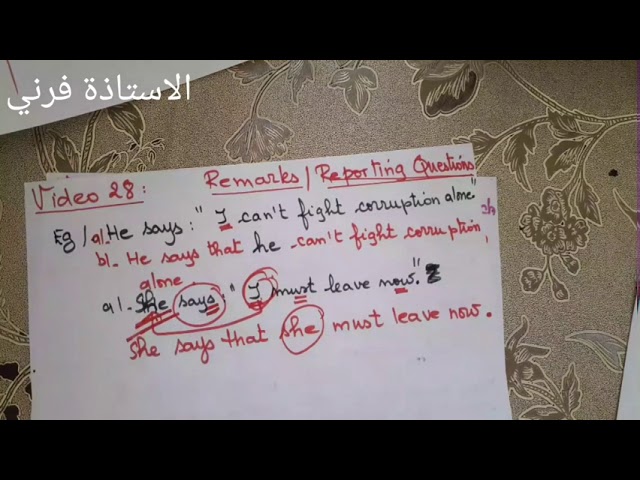 الاستاذة فرني
Video 28: Remarks / Reporting Questions
Eg / a). He says: "I can't fight corruption alone"
b). He says that he can't fight corruption
alone
a). She says: "I must leave now."
She says that she must leave now.